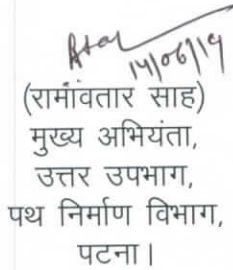 14/06/19
(रामांवतार साह)
मुख्य अभियंता,
उत्तर उपभाग,
पथ निर्माण विभाग,
पटना।